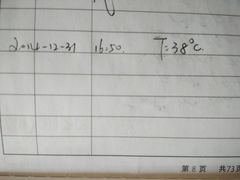 2014-12-31 16:50. T=38°C.
第 8 页 共73页